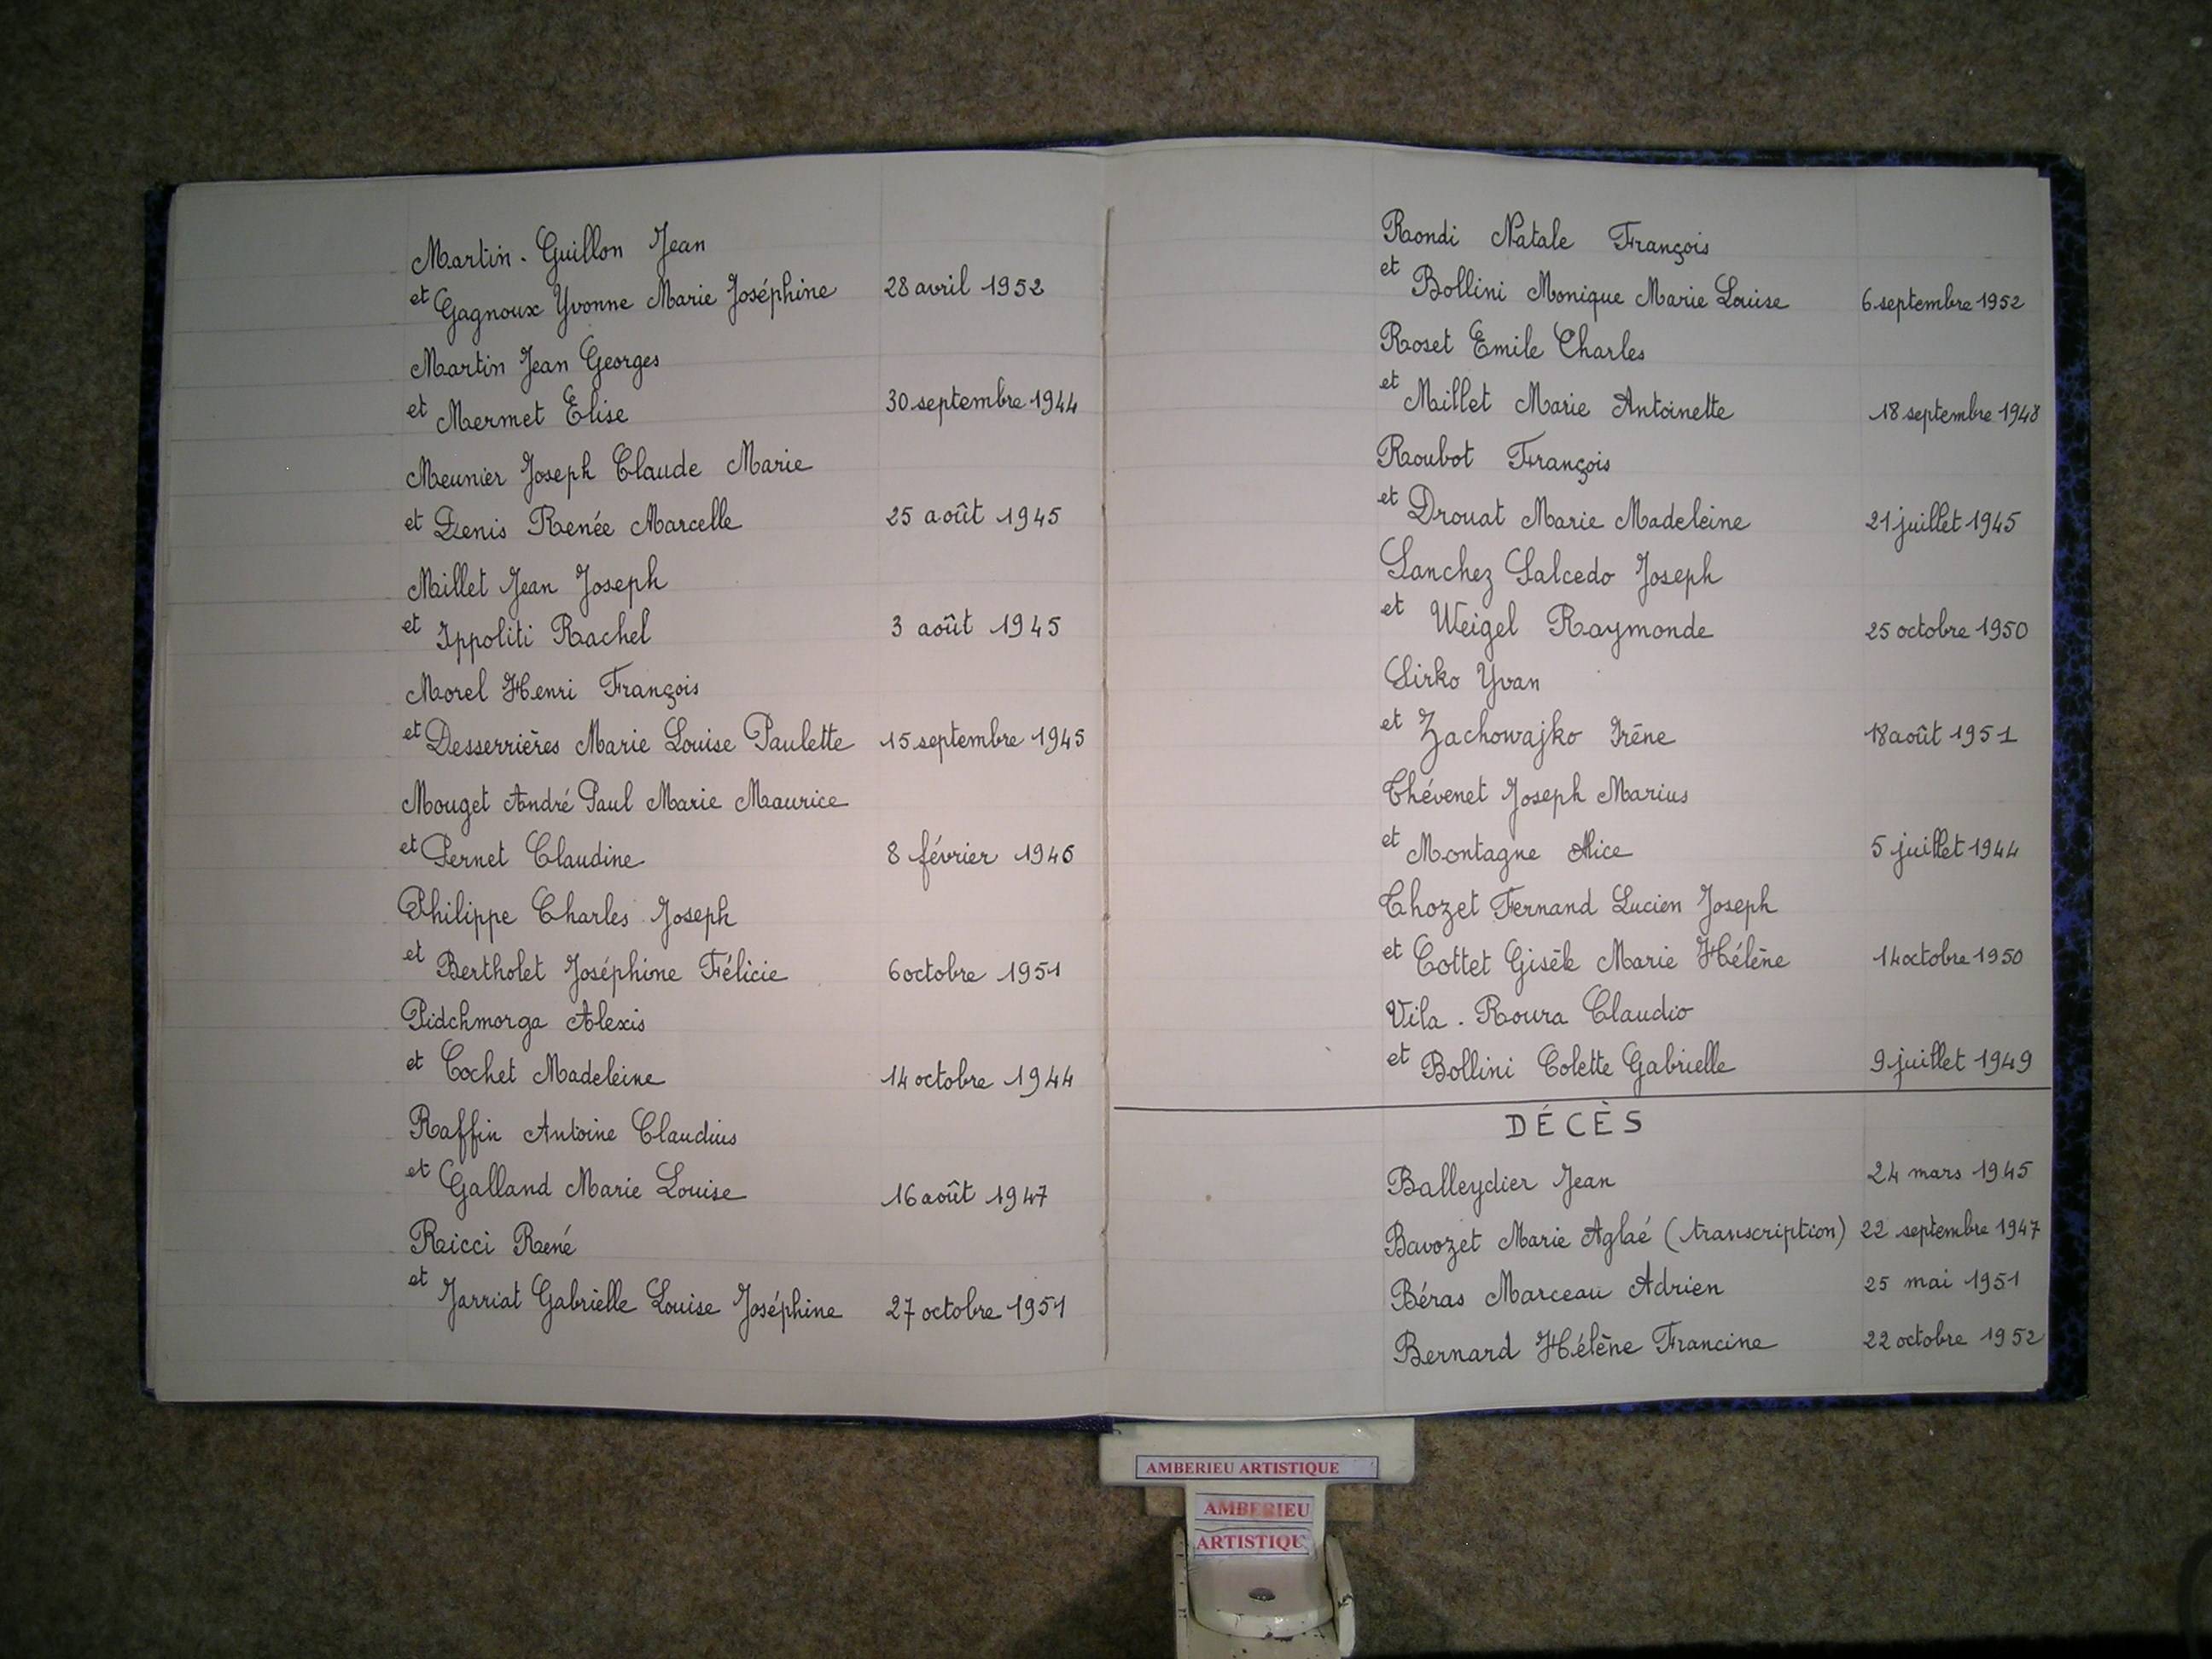 Martin-Guillon Jean
et Gagnoux Yvonne Marie Joséphine 28 avril 1952
Martin Jean Georges
et Mermet Elise 30 septembre 1944
Meunier Joseph Claude Marie
et Denis Renée Marcelle 25 août 1945
Millet Jean Joseph
et Ippoliti Rachel 3 août 1945
Morel Henri François
et Desserrières Marie Louise Paulette 15 septembre 1945
Mouget André Paul Marie Maurice
et Pernet Claudine 8 février 1946
Philippe Charles Joseph
et Bertholet Joséphine Félicie 6 octobre 1951
Pidchmorga Alexis
et Cochet Madeleine 14 octobre 1944
Raffin Antoine Claudius
et Galland Marie Louise 16 août 1947
Ricci René
et Jarriat Gabrielle Louise Joséphine 27 octobre 1951
Rondi Natale François
et Bollini Monique Marie Louise 6 septembre 1952
Roset Emile Charles
et Millet Marie Antoinette 18 septembre 1948
Roubot François
et Drouat Marie Madeleine 21 juillet 1945
Sanchez Salcedo Joseph
et Weigel Raymonde 25 octobre 1950
Sirko Yvan
et Zachowajko Irène 18 août 1951
Thévenet Joseph Marius
et Montagne Alice 5 juillet 1944
Thozet Fernand Lucien Joseph
et Cottet Gisèle Marie Hélène 14 octobre 1950
Vila-Roura Claudio
et Bollini Colette Gabrielle 9 juillet 1949
DÉCÈS
Balleydier Jean 24 mars 1945
Bavozet Marie Aglaé (transcription) 22 septembre 1947
Béras Marceau Adrien 25 mai 1951
Bernard Hélène Francine 22 octobre 1952
AMBERIEU ARTISTIQUE
AMBERIEU
ARTISTIQU